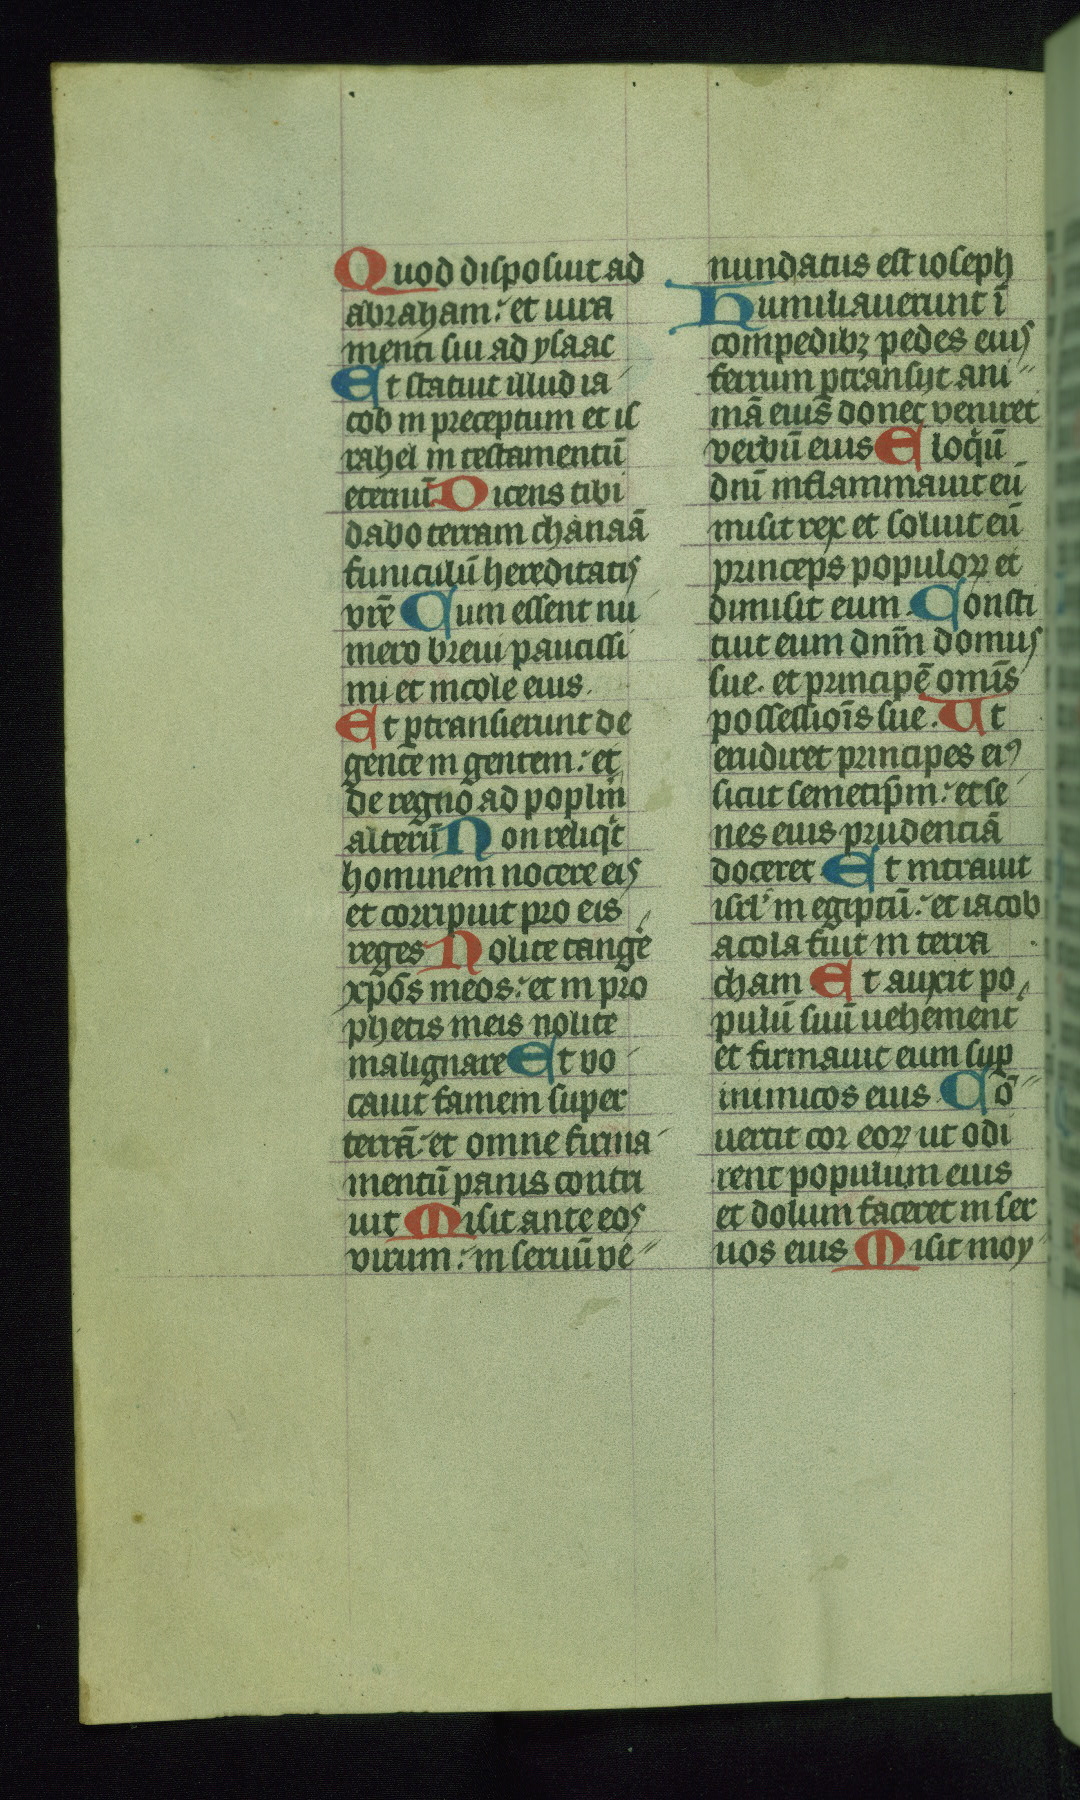 Quod disposuit ad
abraham: et iura
menti sui ad ysaac
Et statuit illud ia
cob in preceptum et is
rahel in testamentū
eternū Dicens tibi
dabo terram chanaā
funiculū hereditatis
vrē Cum essent nu
mero breui paucissi
mi et incole eius.
Et ptransierunt de
gente in gentem: et
de regno ad poplm̄
alterū Non reliq̇t
hominem nocere eis
et corripuit pro eis
reges Nolite tangē
xp̄os meos: et in pro
phetis meis nolite
malignare Et vo
cauit famem super
terrā: et omne firma
mentū panis contri
uit Misit ante eos
virum: in seruū ve
nundatus est ioseph
Humiliauerunt ī
compedibꝫ pedes eius
ferrum ptransijt ani
mā eius donec veniret
verbū eius Eloqū
dnī inflammauit eū
misit rex et soluit eū
princeps populoꝝ et
dimisit eum. Consti
tuit eum dnm̄ domus
sue. et principē omīs
possessioīs sue. Ut
erudiret principes eiꝰ
sicut semetip̄m: et se
nes eius prudenciā
doceret Et intrauit
isrl' in egiptū: et iacob
acola fuit in terra
cham Et auxit po
pulū suū uehement
et firmauit eum sup
inimicos eius Cō
uertit cor eoꝝ ut odi
rent populum eius
et dolum faceret in ser
uos eius Misit moy